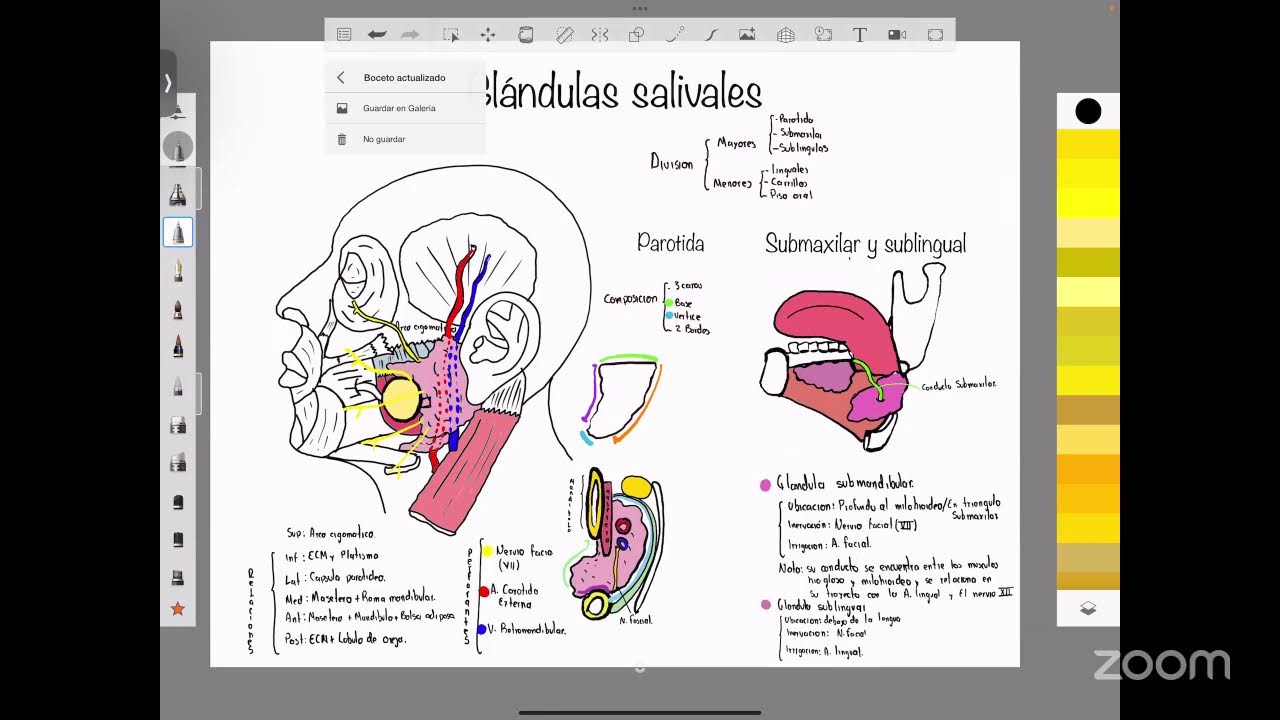 T
Boceto actualizado
Guardar en Galería
No guardar
Glándulas salivales
Division
Mayores
- Parotida
- Submaxilar
- Sublingulas
Menores
- linguales
- Carrillos
- Piso oral
Parotida
Composicion
- 3 caras
Base
vertice
- 2 Bordes
Submaxilar y sublingual
Arco cigomatico
Conducto Submaxilar.
Mandibula
Masetero
N. facial.
Relaciones
Sup: Arco cigomatico.
Inf: ECM y Platisma
Lat: Capsula parotidea.
Med: Masetero + Rama mandibular.
Ant: Masetero + Mandibula + Bolsa adiposa
Post: ECM + Lobulo de oreja.
Perforantes
Nervio Facial
(VII)
A. Carotida
Externa
V. Retromandibular.
Glandula submandibular.
Ubicacion: Profundo al milohioideo/En triangulo
Submaxilar
Inervación: Nervio Facial (VII)
Irrigacion: A. facial.
Nota: su conducto se encuentra entre los musculos
hiogloso y milohioideo y se relaciona en
su trayecto con la A. lingual y El nervio XII
Glandula sublingual
Ubicacion: debajo de la lengua
Inervacion: N. facial
Irrigacion: A. lingual.
zoom